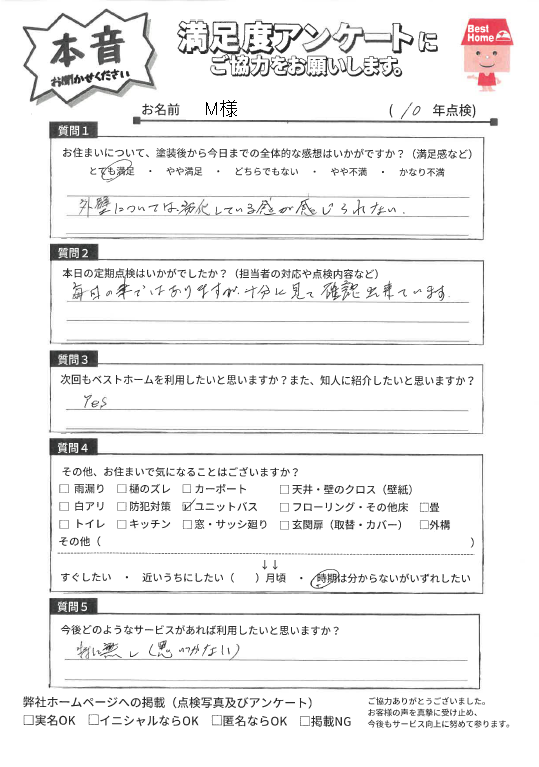 本音
お聞かせください
満足度アンケートに
ご協力をお願いします。
Best Home
お名前 M様 (10年点検)
質問1
お住まいについて、塗装後から今日までの全体的な感想はいかがですか?(満足感など)
とても満足 ・ やや満足 ・ どちらでもない ・ やや不満 ・ かなり不満
外壁については劣化している感が感じられない.
質問2
本日の定期点検はいかがでしたか?(担当者の対応や点検内容など)
毎日の事ではありますが、十分に見て確認出来ています.
質問3
次回もベストホームを利用したいと思いますか?また、知人に紹介したいと思いますか?
Yes
質問4
その他、お住まいで気になることはございますか?
□ 雨漏り □ 樋のズレ □ カーポート □ 天井・壁のクロス(壁紙)
□ 白アリ □ 防犯対策 ☑ ユニットバス □ フローリング・その他床 □畳
□ トイレ □ キッチン □ 窓・サッシ廻り □ 玄関扉(取替・カバー) □外構
その他( )
↓↓
すぐしたい ・ 近いうちにしたい( )月頃 ・ 時期は分からないがいずれしたい
質問5
今後どのようなサービスがあれば利用したいと思いますか?
特に無し(思いつかない)
弊社ホームページへの掲載(点検写真及びアンケート)
□実名OK □イニシャルならOK □匿名ならOK □掲載NG
ご協力ありがとうございました。
お客様の声を真摯に受け止め、
今後もサービス向上に努めて参ります。